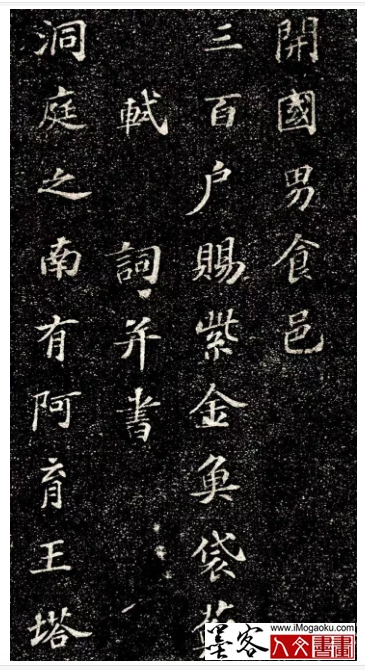 開國男食邑
三百户賜紫金魚袋
軾 詞并書
洞庭之南有阿育王塔
www.iMogaoku.com
墨客
人文書畫